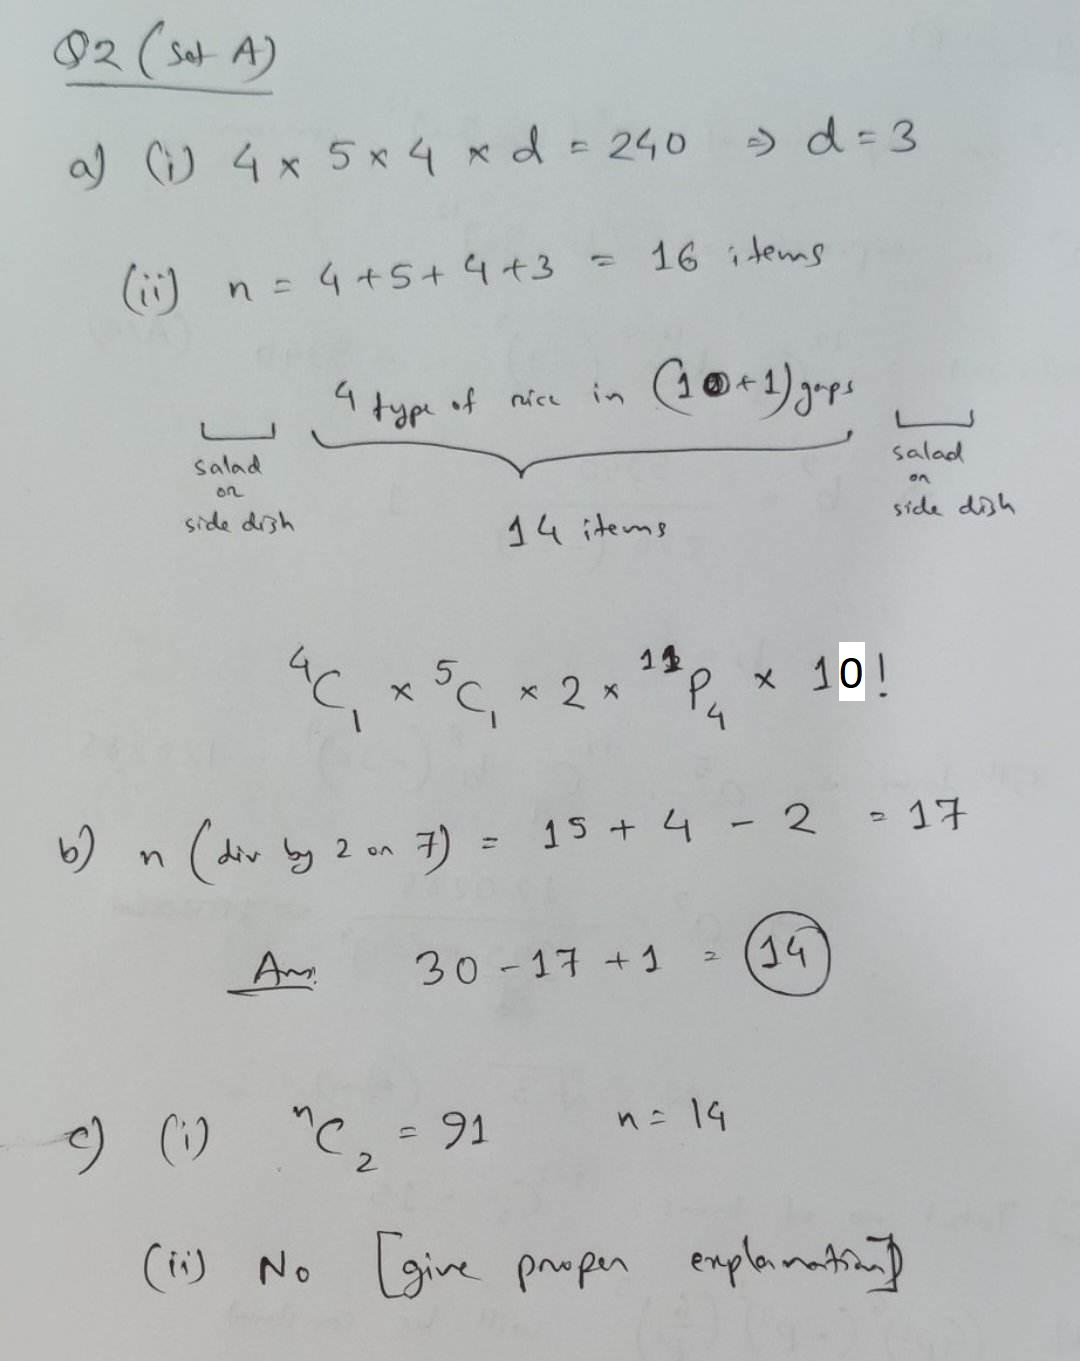 Q2 (Set A)
a) (i) 4 × 5 × 4 × d = 240 ⇒ d = 3
(ii) n = 4 + 5 + 4 + 3 = 16 items
4 type of rice in (10+1) gaps
salad or side dish
14 items
salad or side dish
⁴C₁ × ⁵C₁ × 2 × ¹¹P₄ × 10!
b) n (div by 2 or 7) = 15 + 4 - 2 = 17
Ans: 30 - 17 + 1 = 14
c) (i) ⁿC₂ = 91 n = 14
(ii) No [give proper explanation]